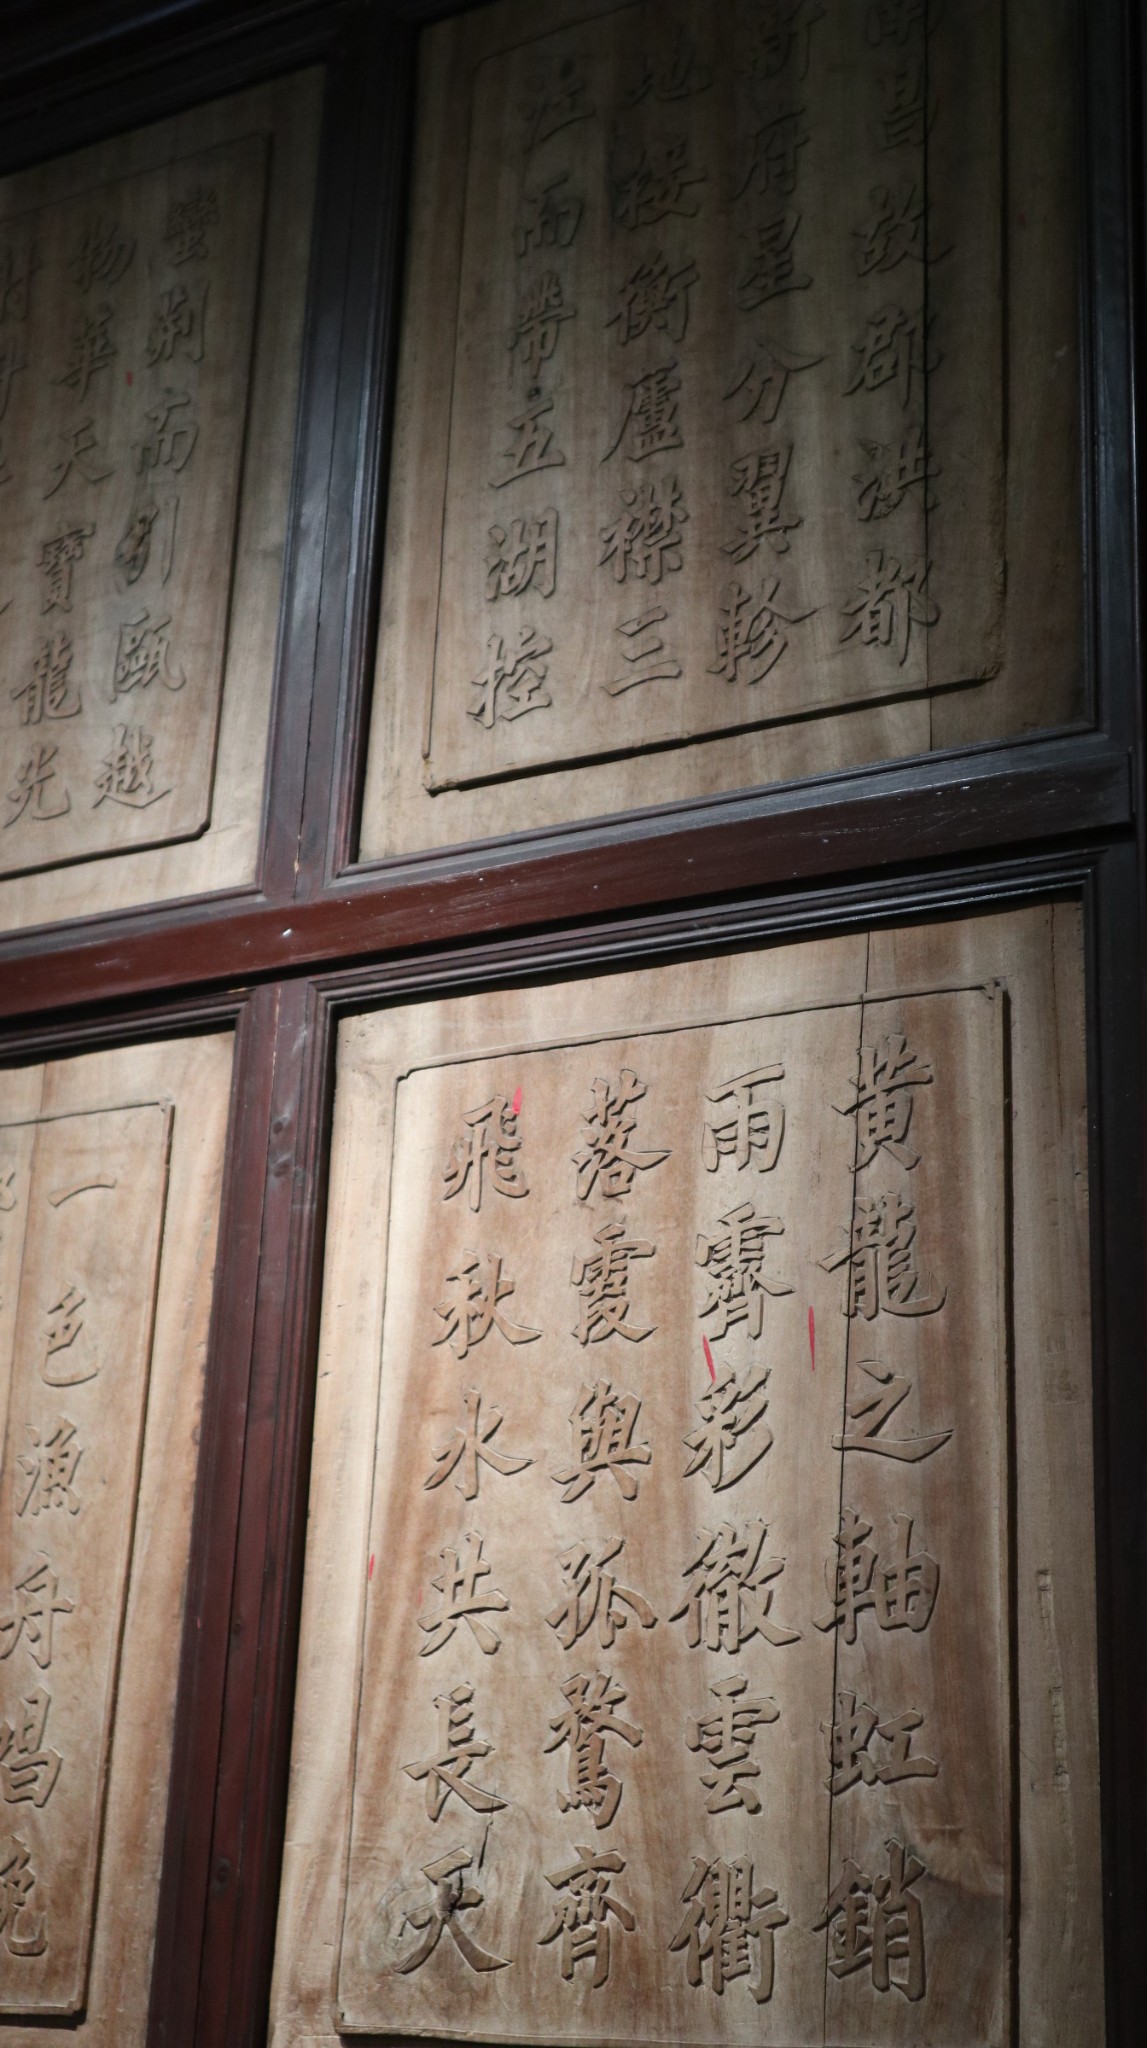 南昌故郡洪都
新府星分翼軫
地接衡廬襟三
江而帶五湖控
蠻荊而引甌越
物華天寶龍光
黄龍之軸虹銷
雨霽彩徹雲衢
落霞與孤鶩齊
飛秋水共長天
一色漁舟唱晚